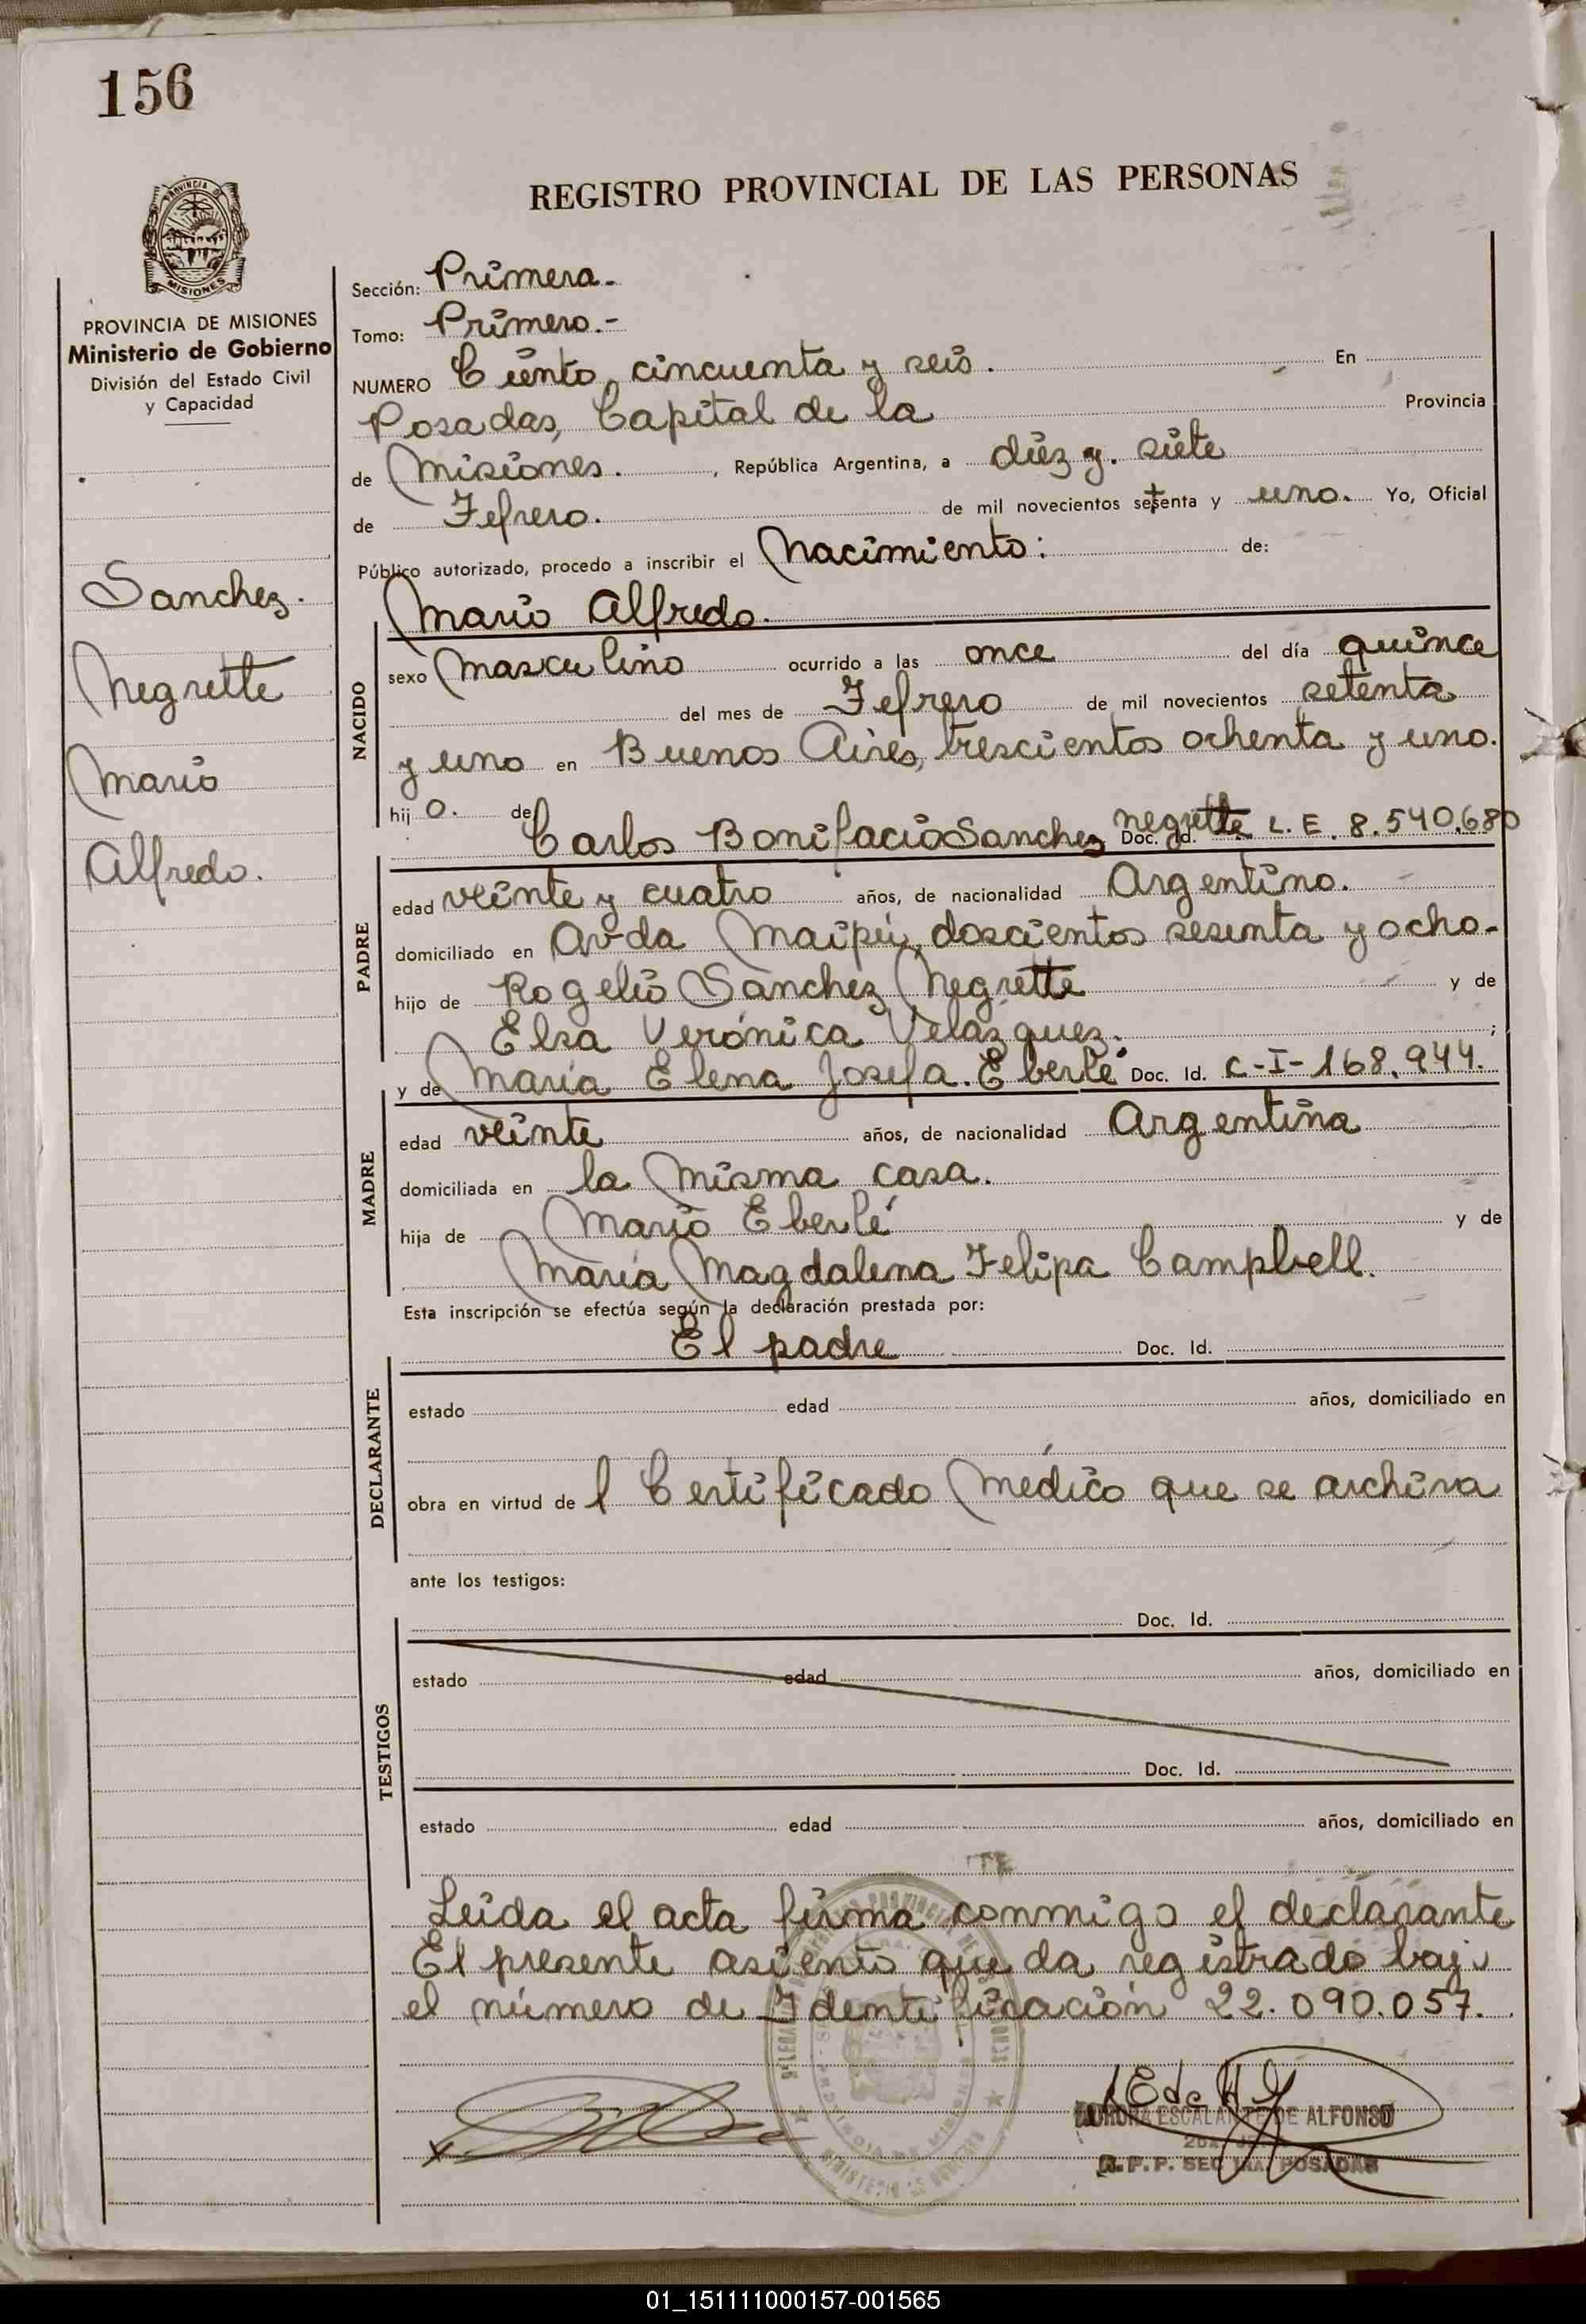 156
REGISTRO PROVINCIAL DE LAS PERSONAS
PROVINCIA DE
MISIONES
PROVINCIA DE MISIONES
Ministerio de Gobierno
División del Estado Civil
y Capacidad
Sanchez.
Negrette
Mario
Alfredo.
Sección: Primera.-
Tomo: Primero.-
NUMERO Ciento, cincuenta y seis. En
Posadas, Capital de la Provincia
de Misiones. , República Argentina, a diez y. siete
de Febrero. de mil novecientos setenta y uno. Yo, Oficial
Público autorizado, procedo a inscribir el Nacimiento: de:
Mario Alfredo.
NACIDO
sexo Masculino ocurrido a las once del día quince
del mes de Febrero de mil novecientos setenta
y uno en Buenos Aires, trescientos ochenta y uno.
hijo. de Carlos Bonifacio Sanchez Negrette Doc. Id. L. E. 8.540.680
PADRE
edad veinte y cuatro años, de nacionalidad Argentino.
domiciliado en Avda Maipú, doscientos sesenta y ocho.-
hijo de Rogelio Sanchez Negrette y de
Elsa Verónica Velazquez. ;
y de María Elena Josefa. Eberlé Doc. Id. C-I-168.944.
MADRE
edad veinte años, de nacionalidad Argentina
domiciliada en la Misma casa.
hija de Mario Eberlé y de
María Magdalena Felipa Campbell.
Esta inscripción se efectúa según la declaración prestada por:
El padre Doc. Id.
DECLARANTE
estado edad años, domiciliado en
obra en virtud de l Certificado Médico que se archiva
ante los testigos:
Doc. Id.
TESTIGOS
estado edad años, domiciliado en
Doc. Id.
estado edad años, domiciliado en
Leida el acta firma conmigo el declarante
El presente asiento queda registrado bajo
el número de Identificación 22.090.057.
AURORA ESCALANTE DE ALFONSO
R.P.P. SEC 1RA. POSADAS
01_151111000157-001565